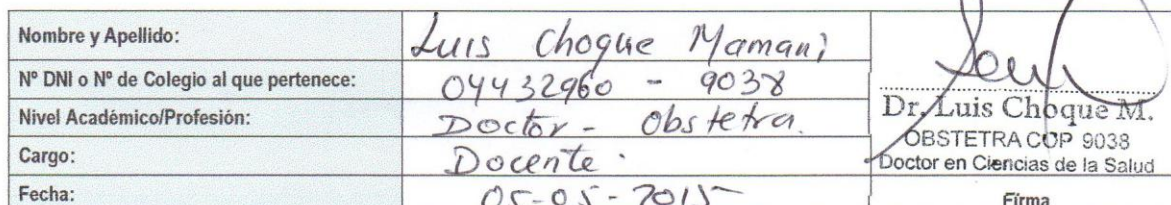 Nombre y Apellido: Luis Choque Mamani
Nº DNI o Nº de Colegio al que pertenece: 04432960 - 9038
Nivel Académico/Profesión: Doctor - Obstetra.
Cargo: Docente.
Fecha: 05-05-2015
Dr. Luis Choque M.
OBSTETRA COP 9038
Doctor en Ciencias de la Salud
Firma